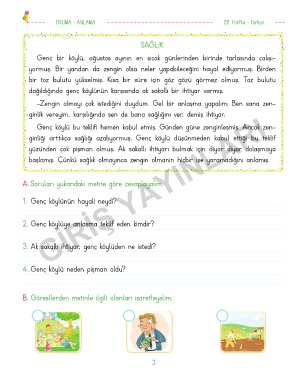 OKUMA - ANLAMA
29. Hafta - Türkçe
SAĞLIK
Genç bir köylü, ağustos ayının en sıcak günlerinden birinde tarlasında çalışı-
yormuş. Bir yandan da zengin olsa neler yapabileceğini hayal ediyormuş. Birden
bir toz bulutu yükselmiş. Kısa bir süre için göz gözü görmez olmuş. Toz bulutu
dağıldığında genç köylünün karşısında ak sakallı bir ihtiyar varmış.
-Zengin olmayı çok istediğini duydum. Gel bir anlaşma yapalım: Ben sana zen-
ginlik vereyim, karşılığında sen de bana sağlığını ver, demiş ihtiyar.
Genç köylü bu teklifi hemen kabul etmiş. Günden güne zenginleşmiş. Ancak zen-
ginliği arttıkça sağlığı azalıyormuş. Genç köylü düşünmeden kabul ettiği bu teklif
yüzünden çok pişman olmuş. Ak sakallı ihtiyarı bulmak için diyar diyar dolaşmaya
başlamış. Çünkü sağlık olmayınca zengin olmanın hiçbir işe yaramadığını anlamış.
A. Soruları yukarıdaki metne göre cevaplayalım.
1. Genç köylünün hayali neydi?
2. Genç köylüye anlaşma teklif eden kimdir?
3. Ak sakallı ihtiyar, genç köylüden ne istedi?
4. Genç köylü neden pişman oldu?
B. Görsellerden metinle ilgili olanları işaretleyelim.
GİRİŞ YAYINLARI
3